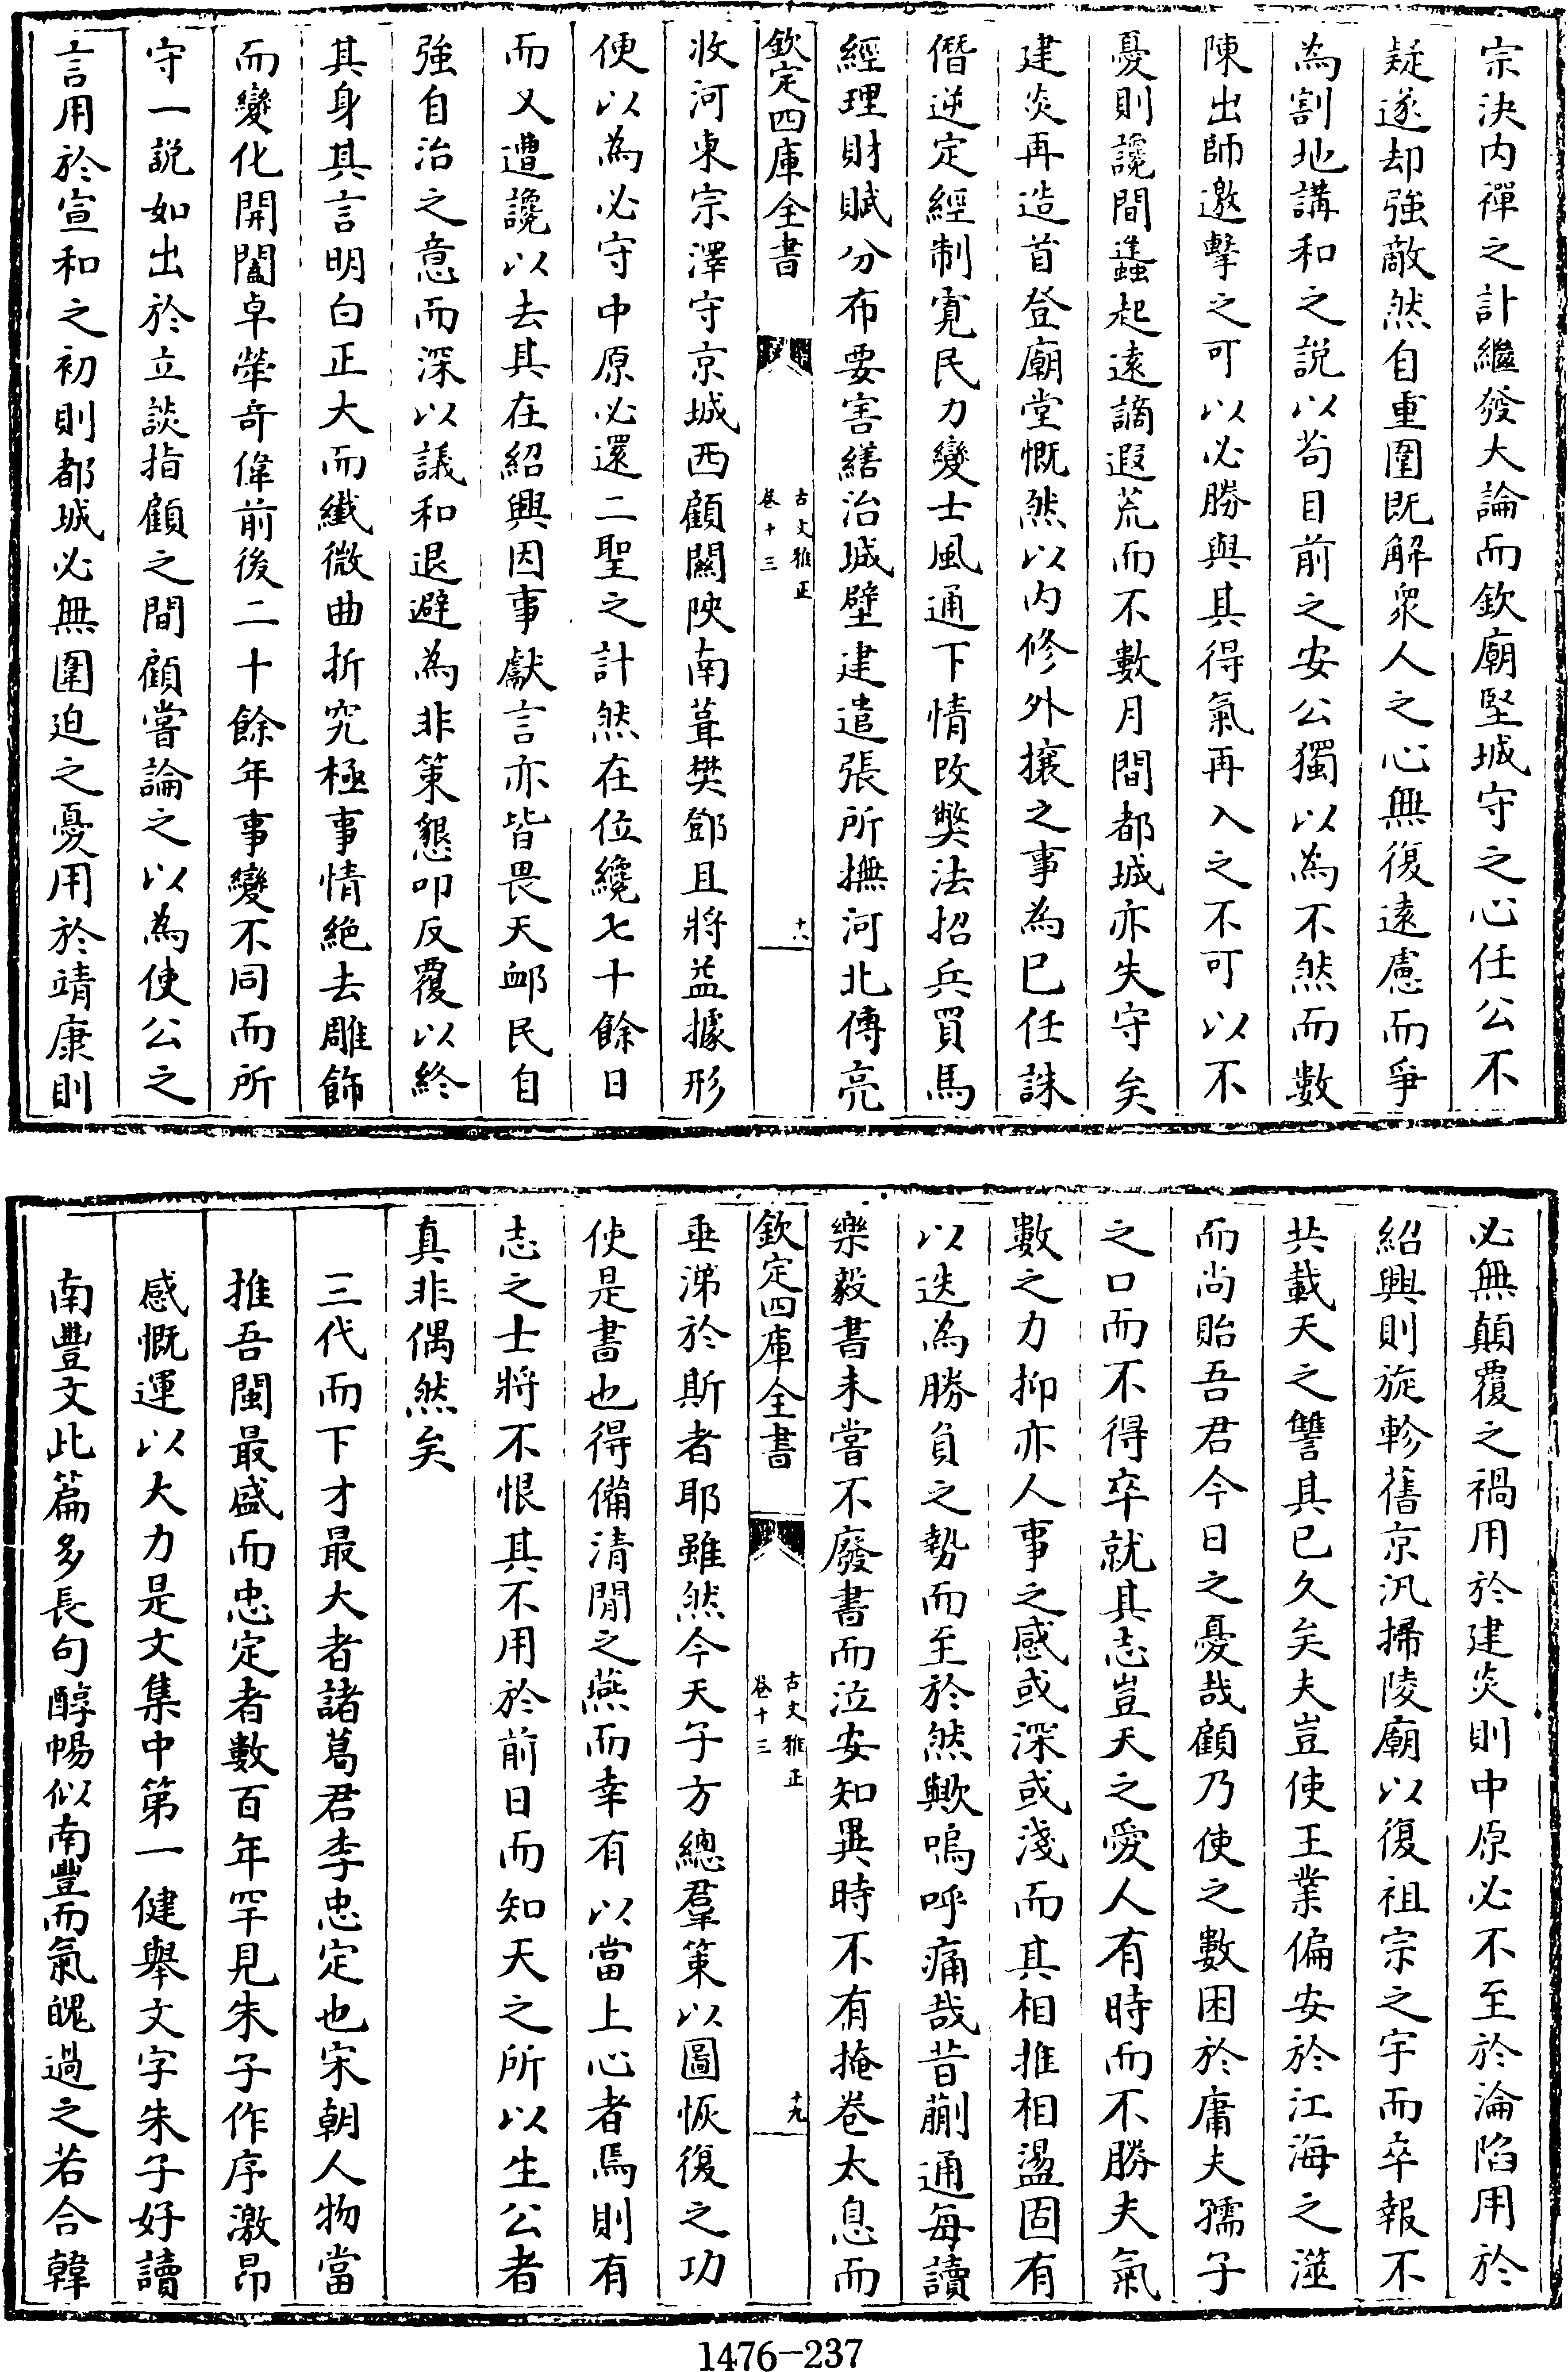 宗決内禪之計繼發大論而欽廟堅城守之心任公不
疑遂却強敵然自重圍既解衆人之心無復遠慮而爭
為割地講和之說以苟目前之安公獨以為不然而數
陳出師邀擊之可以必勝與其得氣再入之不可以不
憂則讒間蠭起遠謫遐荒而不數月間都城亦失守矣
建炎再造首登廟堂慨然以内修外攘之事為已任誅
僭逆定經制寛民力變士風通下情改弊法招兵買馬
經理財賦分布要害繕治城壁建遣張所撫河北傅亮
欽定四庫全書
古文雅正
卷十三
十八
收河東宗澤守京城西顧關陜南葺樊鄧且將益據形
便以為必守中原必還二聖之計然在位纔七十餘日
而又遭讒以去其在紹興因事獻言亦皆畏天䘏民自
強自治之意而深以議和退避為非策懇叩反覆以終
其身其言明白正大而纖微曲折究極事情絶去雕飾
而變化開闔卓犖奇偉前後二十餘年事變不同而所
守一說如出於立談指顧之間顧嘗論之以為使公之
言用於宣和之初則都城必無圍迫之憂用於靖康則
必無顛覆之禍用於建炎則中原必不至於淪陷用於
紹興則旋軫舊京汛掃陵廟以復祖宗之宇而卒報不
共載天之讐其已久矣夫豈使王業偏安於江海之澨
而尚貽吾君今日之憂哉顧乃使之數困於庸夫孺子
之口而不得卒就其志豈天之愛人有時而不勝夫氣
數之力抑亦人事之感或深或淺而其相推相盪固有
以迭為勝負之勢而至於然歟嗚呼痛哉昔蒯通每讀
樂毅書未嘗不廢書而泣安知異時不有掩卷太息而
欽定四庫全書
古文雅正
卷十三
十九
垂涕於斯者耶雖然今天子方總羣策以圖恢復之功
使是書也得備清閒之燕而幸有以當上心者焉則有
志之士將不恨其不用於前日而知天之所以生公者
真非偶然矣
三代而下才最大者諸葛君李忠定也宋朝人物當
推吾閩最盛而忠定者數百年罕見朱子作序激昂
感慨運以大力是文集中第一健舉文字朱子好讀
南豐文此篇多長句醇暢似南豐而氣魄過之若合韓
1476-237